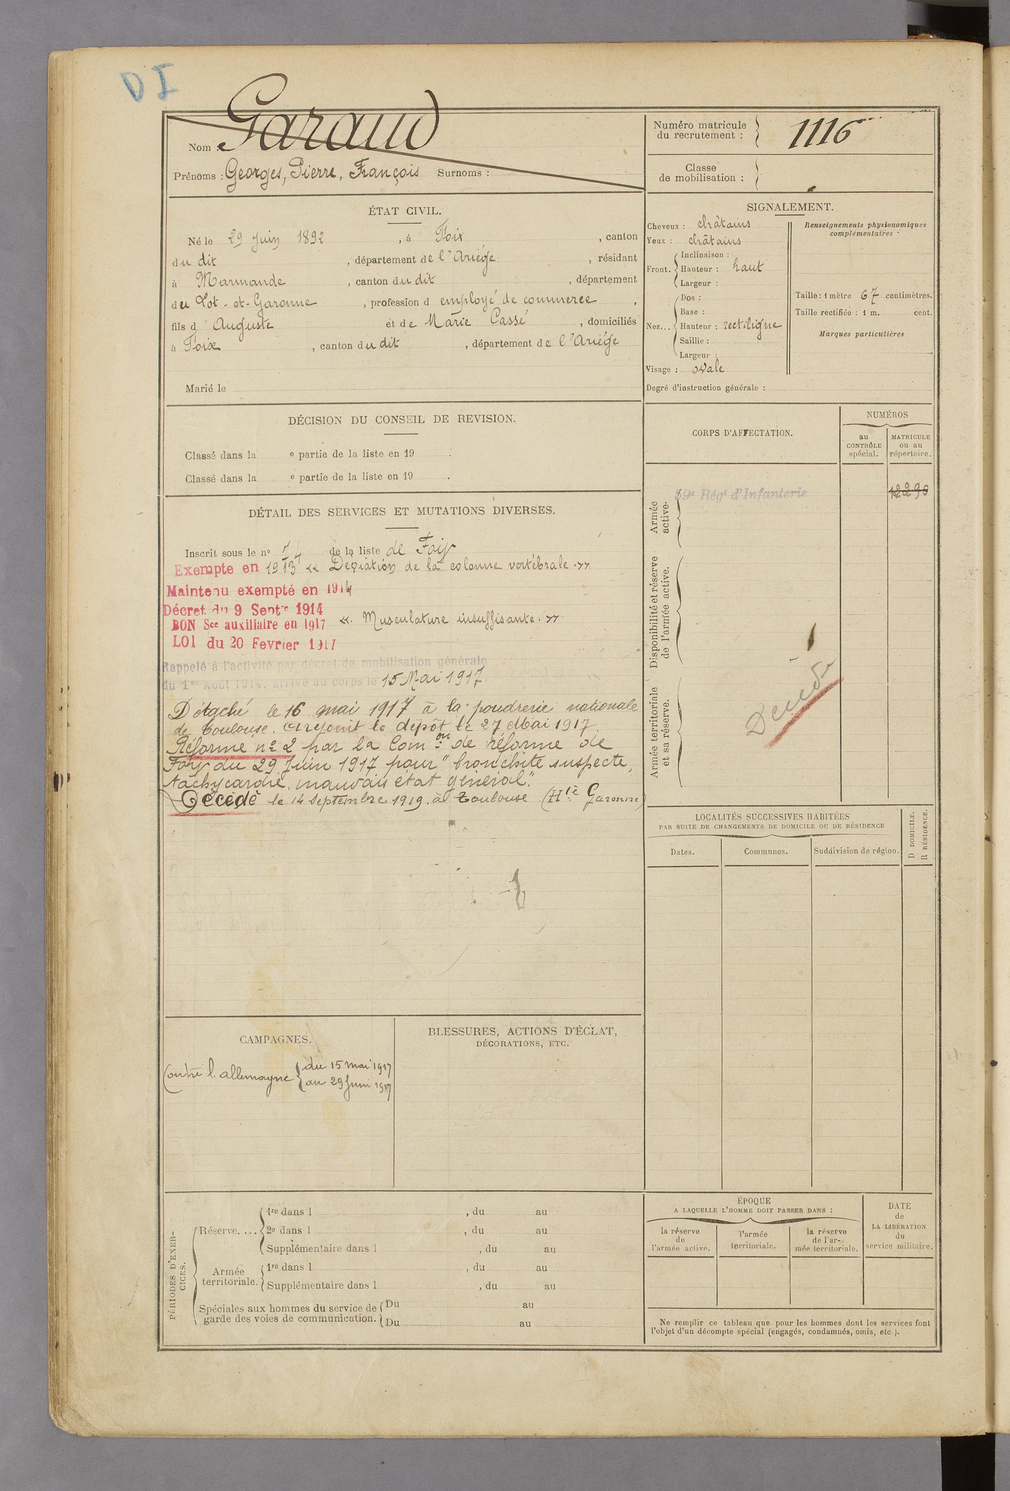 DI
Nom : Garaud
Prénoms : Georges, Pierre, François Surnoms :
Numéro matricule du recrutement : 1116
Classe de mobilisation :
ÉTAT CIVIL.
Né le 29 Juin 1892, à Foix, canton
du dit, département de l'Ariège, résidant
à Marmande, canton du dit, département
du Lot-et-Garonne, profession d employé de commerce,
fils d Auguste et de Marie Cassé, domiciliés
à Foix, canton du dit, département de l'Ariège
Marié le
SIGNALEMENT.
Cheveux : châtains
Yeux : châtains
Front. Inclinaison :
Hauteur : haut
Largeur :
Nez... Dos :
Base :
Hauteur : rectiligne
Saillie :
Largeur :
Visage : ovale
Degré d'instruction générale :
Renseignements physionomiques complémentaires :
Taille : 1 mètre 67 centimètres.
Taille rectifiée : 1 m. cent.
Marques particulières
DÉCISION DU CONSEIL DE REVISION.
Classé dans la e partie de la liste en 19 .
Classé dans la e partie de la liste en 19 .
DÉTAIL DES SERVICES ET MUTATIONS DIVERSES.
Inscrit sous le n° de la liste de Foix
Exempte en 1913 « Déviation de la colonne vertébrale. »
Maintenu exempté en 1914
Décret du 9 Septre 1914
BON Sce auxiliaire en 1917 « Musculature insuffisante. »
LOI du 20 Fevrier 1917
Rappelé à l'activité par décret de mobilisation générale
du 1er Août 1914, arrivé au corps le 15 Mai 1917
Détaché le 16 mai 1917 à la poudrerie nationale
de Toulouse. A rejoint le dépôt le 27 Mai 1917.
Réformé n° 2 par la Comon de réforme de
Foix du 29 Juin 1917 pour "bronchite suspecte,
tachycardie, mauvais état général".
Décédé le 14 Septembre 1919 à Toulouse (Hte Garonne)
CORPS D'AFFECTATION.
NUMÉROS
au CONTRÔLE spécial.
MATRICULE ou au répertoire.
Armée active.
59e Régt d'Infanterie
12290
Disponibilité et réserve de l'armée active.
Armée territoriale et sa réserve.
Décédé
LOCALITÉS SUCCESSIVES HABITÉES
PAR SUITE DE CHANGEMENTS DE DOMICILE OU DE RÉSIDENCE
Dates.
Communes.
Subdivision de région.
D DOMICILE.
R RÉSIDENCE.
CAMPAGNES.
Contre l'allemagne du 15 mai 1917
au 29 Juin 1917
BLESSURES, ACTIONS D'ÉCLAT,
DÉCORATIONS, ETC.
PÉRIODES D'EXERCICES.
Réserve.... 1re dans l , du au
2e dans l , du au
Supplémentaire dans l , du au
Armée territoriale. 1re dans l , du au
Supplémentaire dans l , du au
Spéciales aux hommes du service de garde des voies de communication. Du au
Du au
ÉPOQUE
A LAQUELLE L'HOMME DOIT PASSER DANS :
la réserve de l'armée active.
l'armée territoriale.
la réserve de l'armée territoriale.
DATE de LA LIBÉRATION du service militaire.
Ne remplir ce tableau que pour les hommes dont les services font
l'objet d'un décompte spécial (engagés, condamnés, omis, etc.).